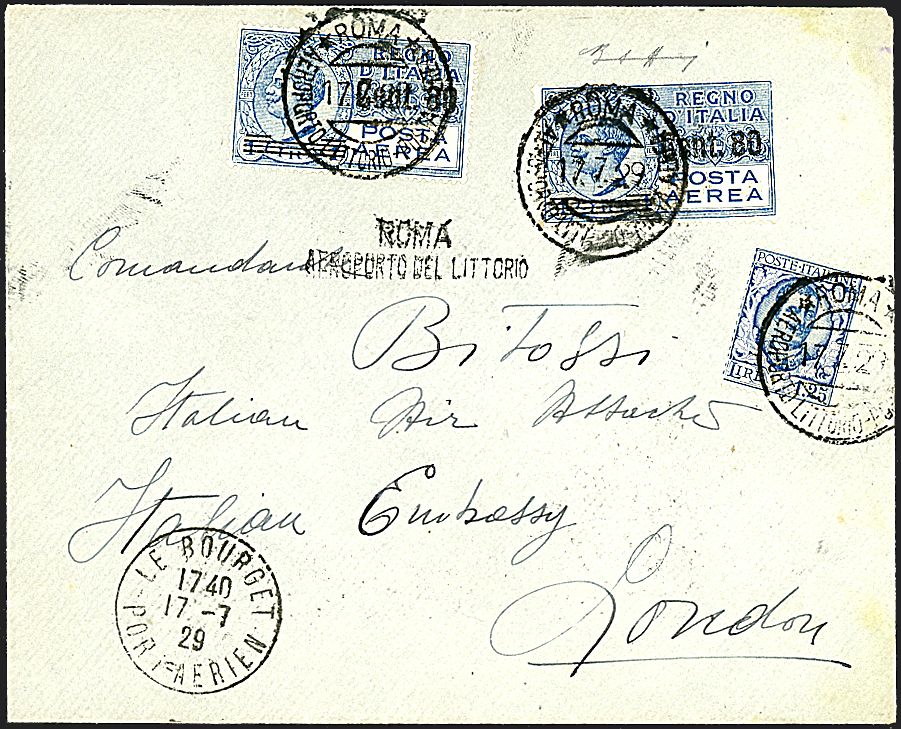 REGNO
D'ITALIA
Cent. 80
POSTA
AEREA
★ ROMA ★
AEROPORTO LITTORIO
17.
REGNO
D'ITALIA
Cent. 80
POSTA
AEREA
★ ROMA ★
17.7.29
ROMA
AEROPORTO DEL LITTORIO
POSTE·ITALIANE
LIRE 1.25
★ ROMA ★
17.7.29
AEROPORTO LITTORIO
Comandante
Bitossi
Italian Air Attaché
Italian Embassy
London
LE BOURGET
1740
17 -7
29
PORT-AERIEN